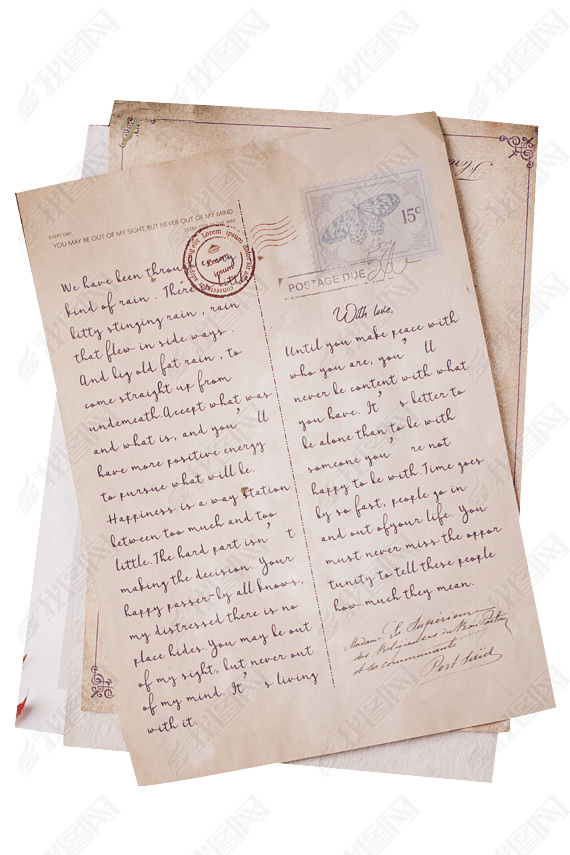 EVERY DAY
YOU MAY BE OUT OF MY SIGHT, BUT NEVER OUT OF MY MIND
EVERY STEP OF THE WAY
Lorem ipsum
15c
POSTAGE DUE
We have been through
kind of rain . There
bitty stinging rain , rain
that flew in side ways .
And big old fat rain , to
come straight up from
underneath.Accept what was
and what is, and you’ ll
have more positive energy
to pursue what will be.
Happiness is a way station
between too much and too
little.The hard part isn’ t
making the decision. Your
happy passer-by all knows,
my distressed there is no
place hides.You may be out
of my sight, but never out
of my mind. It’ s living
with it.
With love,
Until you make peace with
who you are, you’ ll
never be content with what
you have. It’ s letter to
be alone than to be with
someone you’ re not
happy to be with.Time goes
by so fast, people go in
and out of your life. You
must never miss the oppor
tunity to tell these people
how much they mean.
Madame La Supérieure
des Religieuses du Bon Pasteur
et sa communauté
Port Saïd
我图网